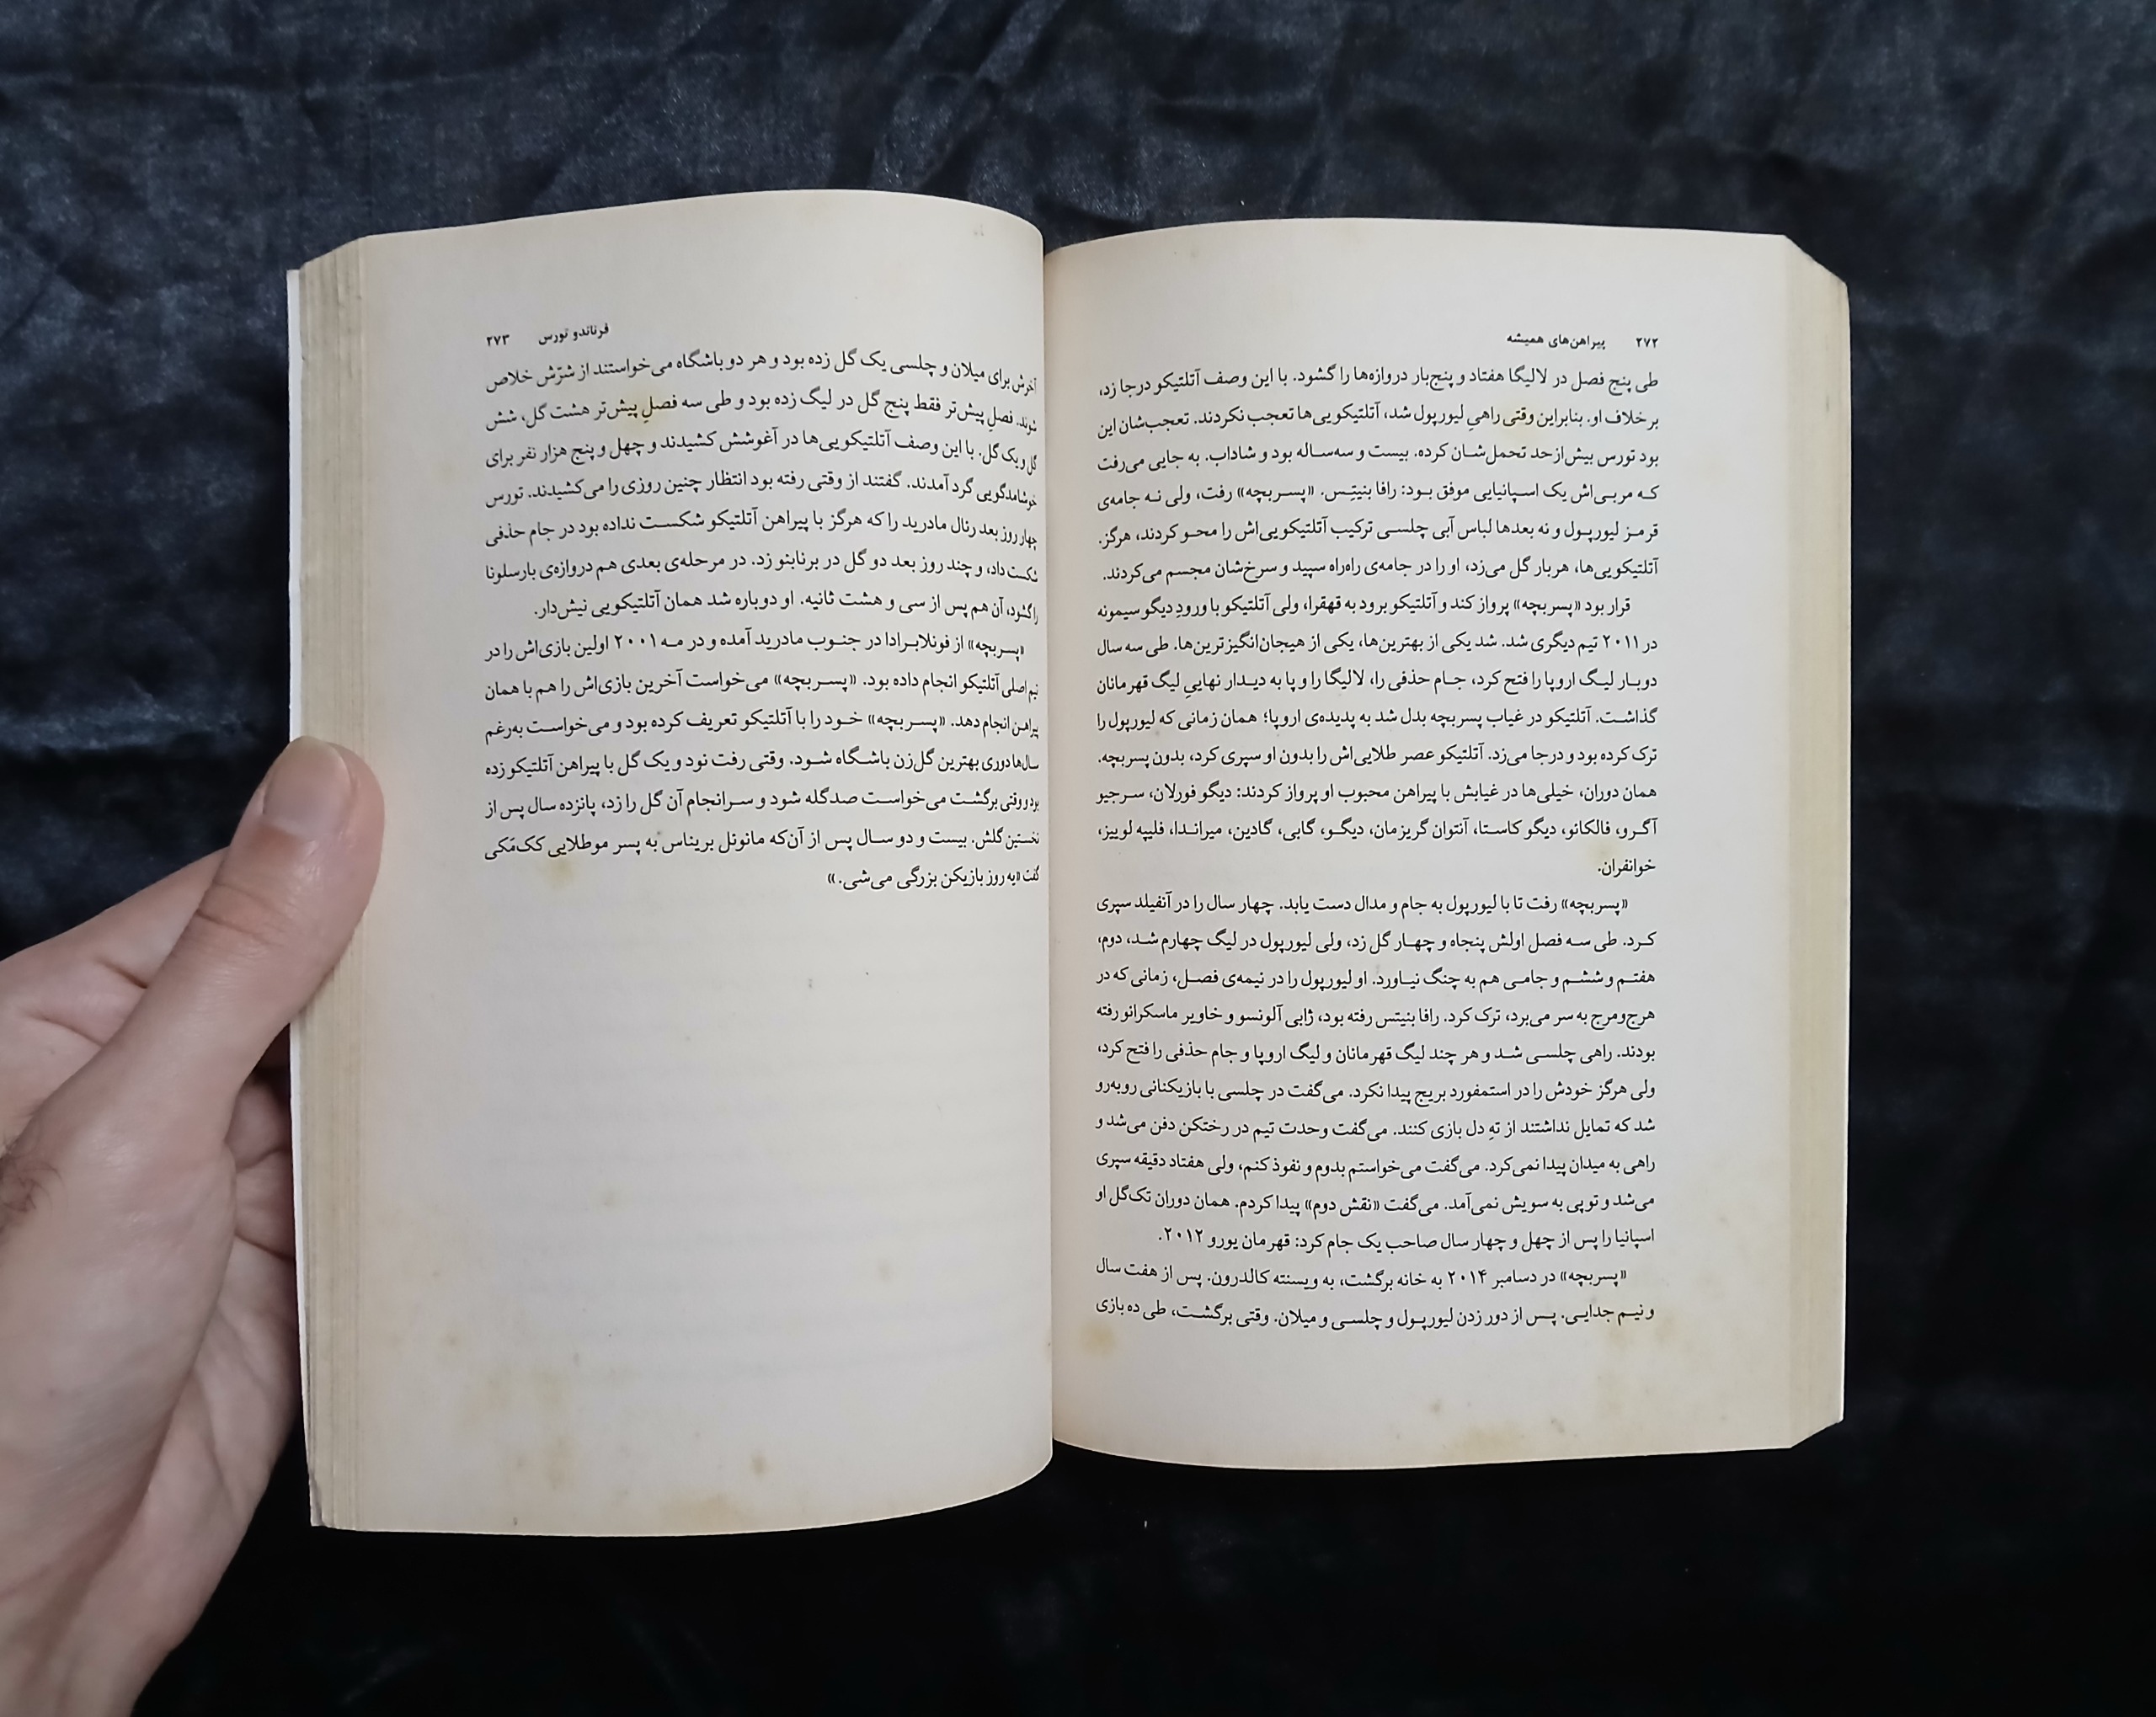 ۲۷۲ پیراهن‌های همیشه
طی پنج فصل در لالیگا هفتاد و پنج‌بار دروازه‌ها را گشود. با این وصف آتلتیکو درجا زد،
برخلاف او. بنابراین وقتی راهیِ لیورپول شد، آتلتیکویی‌ها تعجب نکردند. تعجب‌شان این
بود تورس بیش‌ازحد تحمل‌شان کرده. بیست و سه‌ساله بود و شاداب. به جایی می‌رفت
که مربی‌اش یک اسپانیایی موفق بود: رافا بنیتِس. «پسربچه» رفت، ولی نه جامه‌ی
قرمز لیورپول و نه بعدها لباس آبی چلسی ترکیب آتلتیکویی‌اش را محو کردند، هرگز.
آتلتیکویی‌ها، هربار گل می‌زد، او را در جامه‌ی راه‌راه سپید و سرخ‌شان مجسم می‌کردند.
قرار بود «پسربچه» پرواز کند و آتلتیکو برود به قهقرا، ولی آتلتیکو با ورودِ دیگو سیمونه
در ۲۰۱۱ تیم دیگری شد. شد یکی از بهترین‌ها، یکی از هیجان‌انگیزترین‌ها. طی سه سال
دوبار لیگ اروپا را فتح کرد، جام حذفی را، لالیگا را و پا به دیدار نهاییِ لیگ قهرمانان
گذاشت. آتلتیکو در غیاب پسربچه بدل شد به پدیده‌ی اروپا؛ همان زمانی که لیورپول را
ترک کرده بود و درجا می‌زد. آتلتیکو عصر طلایی‌اش را بدون او سپری کرد، بدون پسربچه.
همان دوران، خیلی‌ها در غیابش با پیراهن محبوب او پرواز کردند: دیگو فورلان، سرجیو
آگرو، فالکائو، دیگو کاستا، آنتوان گریزمان، دیگو، گابی، گادین، میراندا، فلیپه لوییز،
خوانفران.
«پسربچه» رفت تا با لیورپول به جام و مدال دست یابد. چهار سال را در آنفیلد سپری
کرد. طی سه فصل اولش پنجاه و چهار گل زد، ولی لیورپول در لیگ چهارم شد، دوم،
هفتم و ششم و جامی هم به چنگ نیاورد. او لیورپول را در نیمه‌ی فصل، زمانی که در
هرج‌ومرج به سر می‌برد، ترک کرد. رافا بنیتس رفته بود، ژابی آلونسو و خاویر ماسکرانو رفته
بودند. راهی چلسی شد و هر چند لیگ قهرمانان و لیگ اروپا و جام حذفی را فتح کرد،
ولی هرگز خودش را در استمفورد بریج پیدا نکرد. می‌گفت در چلسی با بازیکنانی روبه‌رو
شد که تمایل نداشتند از تهِ دل بازی کنند. می‌گفت وحدت تیم در رختکن دفن می‌شد و
راهی به میدان پیدا نمی‌کرد. می‌گفت می‌خواستم بدوم و نفوذ کنم، ولی هفتاد دقیقه سپری
می‌شد و توپی به سویش نمی‌آمد. می‌گفت «نقش دوم» پیدا کردم. همان دوران تک‌گل او
اسپانیا را پس از چهل و چهار سال صاحب یک جام کرد: قهرمان یورو ۲۰۱۲.
«پسربچه» در دسامبر ۲۰۱۴ به خانه برگشت، به ویسنته کالدرون. پس از هفت سال
و نیم جدایی. پس از دور زدن لیورپول و چلسی و میلان. وقتی برگشت، طی ده بازی
فرناندو تورس ۲۷۳
آخرش برای میلان و چلسی یک گل زده بود و هر دو باشگاه می‌خواستند از شرّش خلاص
شوند. فصلِ پیش‌تر فقط پنج گل در لیگ زده بود و طی سه فصلِ پیش‌تر هشت گل، شش
گل و یک گل. با این وصف آتلتیکویی‌ها در آغوشش کشیدند و چهل و پنج هزار نفر برای
خوشامدگویی گرد آمدند. گفتند از وقتی رفته بود انتظار چنین روزی را می‌کشیدند. تورس
چهار روز بعد رئال مادرید را که هرگز با پیراهن آتلتیکو شکست نداده بود در جام حذفی
شکست داد، و چند روز بعد دو گل در برنابئو زد. در مرحله‌ی بعدی هم دروازه‌ی بارسلونا
را گشود، آن هم پس از سی و هشت ثانیه. او دوباره شد همان آتلتیکویی نیش‌دار.
«پسربچه» از فونلابرادا در جنوب مادرید آمده و در مه ۲۰۰۱ اولین بازی‌اش را در
تیم اصلی آتلتیکو انجام داده بود. «پسربچه» می‌خواست آخرین بازی‌اش را هم با همان
پیراهن انجام دهد. «پسربچه» خود را با آتلتیکو تعریف کرده بود و می‌خواست به‌رغم
سال‌ها دوری بهترین گل‌زن باشگاه شود. وقتی رفت نود و یک گل با پیراهن آتلتیکو زده
بود و وقتی برگشت می‌خواست صدگله شود و سرانجام آن گل را زد، پانزده سال پس از
نخستین گلش. بیست و دو سال پس از آن‌که مانوئل بریناس به پسر موطلایی کک‌مَکی
گفت «یه روز بازیکن بزرگی می‌شی.»